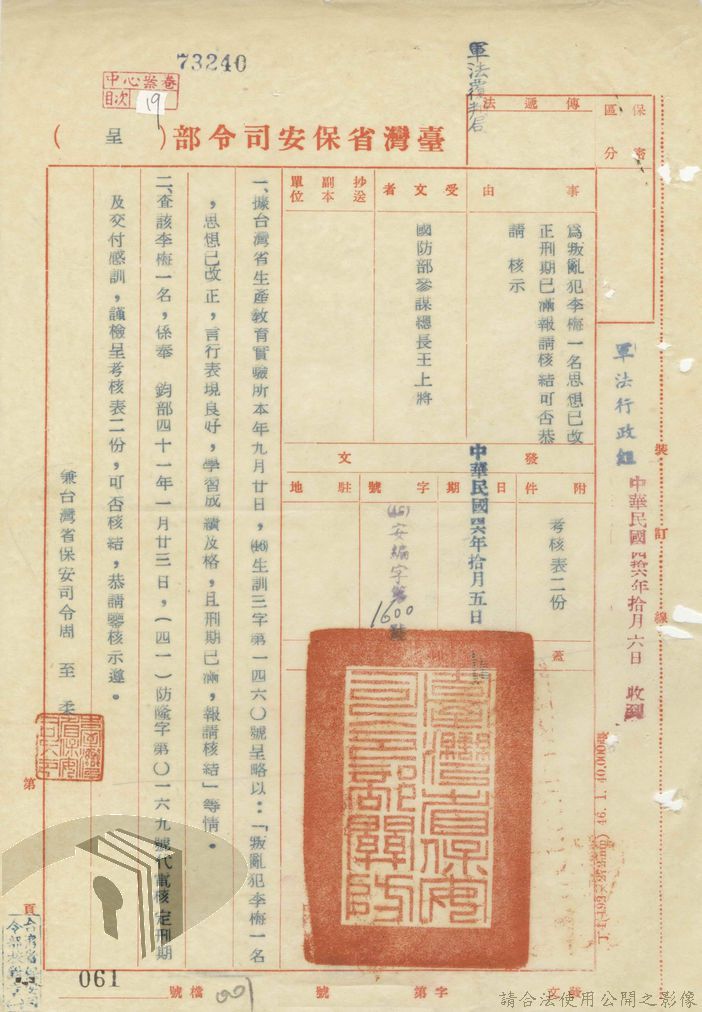 73240
中心案卷
目次 19
軍法覆判局
保密
區分
傳遞法
臺灣省保安司令部(呈)
事由
為叛亂犯李梅一名思想已改
正刑期已滿報請核結可否恭
請 核示
受文者
國防部參謀總長王上將
抄送
副本
單位
發文
附件
考核表二份
日期
中華民國四六年拾月五日
字號
(46)安編字第
1600
號
駐地
蓋
一、據台灣省生產教育實驗所本年九月廿日,(46)生訓三字第一四六〇號呈略以:「叛亂犯李梅一名
,思想已改正,言行表現良好,學習成績及格,且刑期已滿,報請核結」等情。
二、查該李梅一名,係奉 鈞部四十一年一月廿三日,(四一)防隆字第〇一六九號代電核定刑期
及交付感訓,謹檢呈考核表二份,可否核結,恭請鑒核示遵。
兼台灣省保安司令周至柔
臺灣省保安司令部關防
軍法行政組
中華民國四六年拾月六日 收到
裝訂線
第頁
061
檔號
發文 字第 號
請合法使用公開之影像